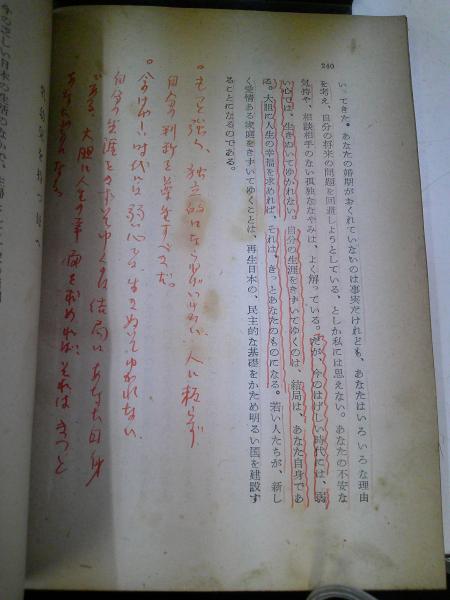 240
い　ってきた。あなたの婚期がおくれていないのは事実だけれども、あなたはいろいろな理由
を考え、自分の将来の問題を回避しようとしている、としか私には思えない。あなたの不安な
気持や、相談相手のない孤独ななやみは、よく解っている。だが、今のはげしい時代には、弱
い心では、生きぬいてゆかれない。自分の生涯をきずいてゆくのは、結局は、あなた自身であ
る。大胆に人生の幸福を求めれば、それは、きっとあなたのものになる。若い人たちが、新し
く愛情ある家庭をきずいてゆくことは、再生日本の、民主的な基礎をかため明るい国を建設す
ることになるのである。
。もっと強く、独立的にならなければいけない 人に頼らず
自分の判断を
。今のはげしい時代には弱い心では生きぬいてゆかれない
自分の生涯をきずいてゆくのは結局はあなた自身
である、大胆に人生の幸福を求めれば、それはきっと
あなたのものになる